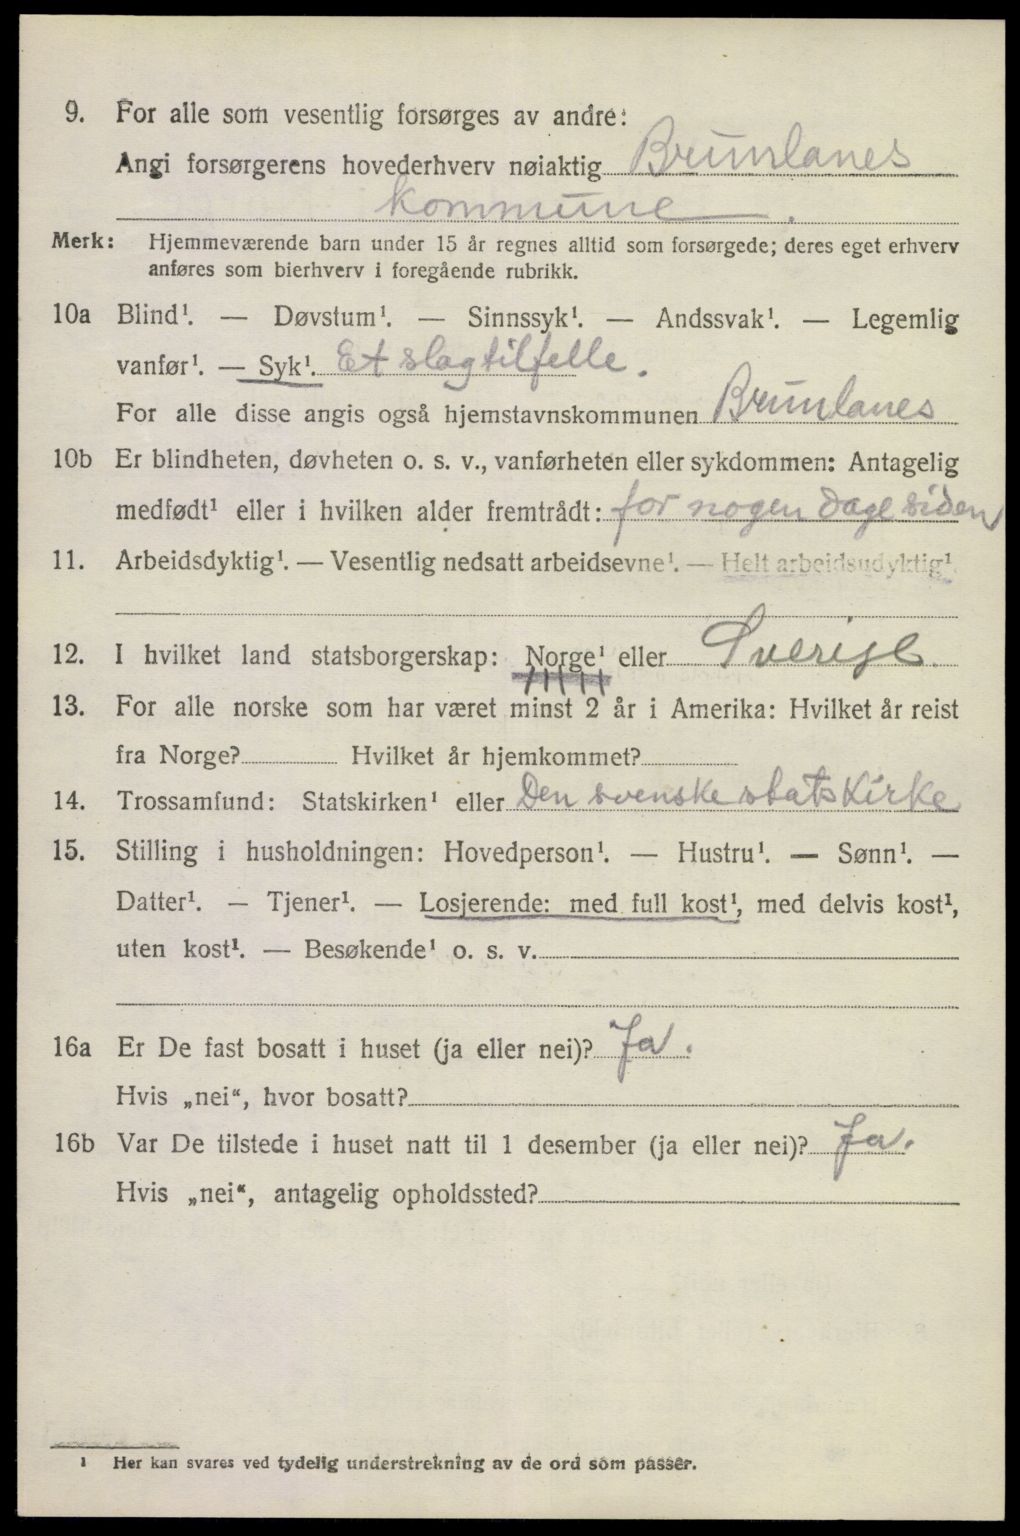 9. For alle som vesentlig forsørges av andre:
Angi forsørgerens hovederhverv nøiaktig Brunlanes
kommune.
Merk: Hjemmeværende barn under 15 år regnes alltid som forsørgede; deres eget erhverv
anføres som bierhverv i foregående rubrikk.
10a Blind¹. — Døvstum¹. — Sinnssyk¹. — Andssvak¹. — Legemlig
vanfør¹. — Syk¹. Et slagtilfelle.
For alle disse angis også hjemstavnskommunen Brunlanes
10b Er blindheten, døvheten o. s. v., vanførheten eller sykdommen: Antagelig
medfødt¹ eller i hvilken alder fremtrådt: for nogen dage siden
11. Arbeidsdyktig¹. — Vesentlig nedsatt arbeidsevne¹. — Helt arbeidsudyktig¹.
12. I hvilket land statsborgerskap: Norge¹ eller Sverige
13. For alle norske som har været minst 2 år i Amerika: Hvilket år reist
fra Norge? Hvilket år hjemkommet?
14. Trossamfund: Statskirken¹ eller Den svenske statskirke
15. Stilling i husholdningen: Hovedperson¹. — Hustru¹. — Sønn¹. —
Datter¹. — Tjener¹. — Losjerende: med full kost¹, med delvis kost¹,
uten kost¹. — Besøkende¹ o. s. v.
16a Er De fast bosatt i huset (ja eller nei)? Ja.
Hvis „nei“, hvor bosatt?
16b Var De tilstede i huset natt til 1 desember (ja eller nei)? Ja.
Hvis „nei“, antagelig opholdssted?
¹ Her kan svares ved tydelig understrekning av de ord som passer.